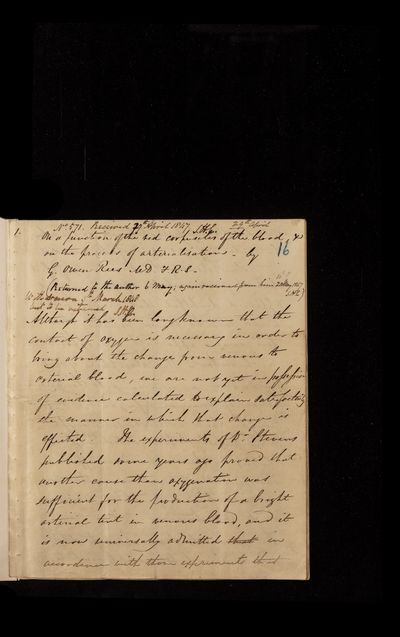 1.
No. 571. Received 29th April 1847 22nd April
On a function of the red corpuscles of the blood, &
16
on the process of arterialisation. by
G. Owen Rees MD. F.R.S.
(Returned to the author 6 May; again received from him 20 May 1847
Withdrawn March 1848
Although it has been long known that the
contact of oxygen is necessary in order to
bring about the change from venous to
arterial blood, we are not yet in possession
of evidence calculated to explain satisfactorily
the manner in which that change is
effected The experiments of Dr. Stevens
published some years ago proved that
another cause than oxygenation was
sufficient for the production of a bright
arterial tint in venous blood, and it
is now universally admitted that in
accordance with those experiments that